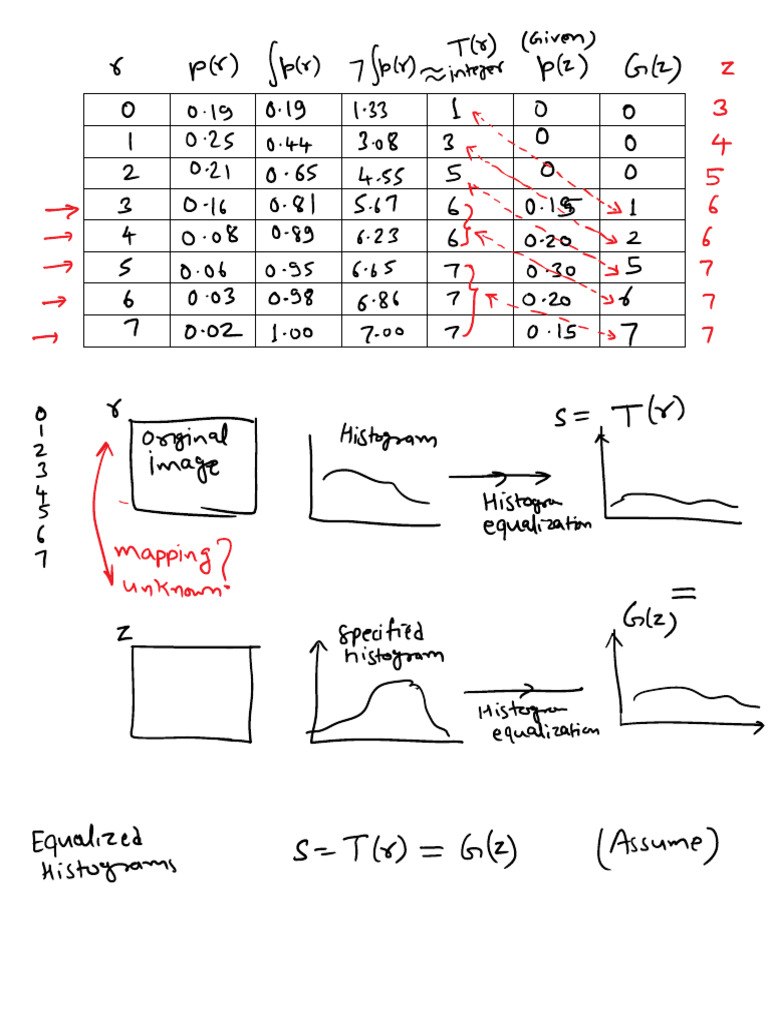 r p(r) ∫p(r) 7∫p(r) T(r) ≈integer (Given) p(z) G(z) z
0 0.19 0.19 1.33 1 0 0 3
1 0.25 0.44 3.08 3 0 0 4
2 0.21 0.65 4.55 5 0 0 5
→ 3 0.16 0.81 5.67 6 0.15 1 6
→ 4 0.08 0.89 6.23 6 0.20 2 6
→ 5 0.06 0.95 6.65 7 0.30 5 7
→ 6 0.03 0.98 6.86 7 0.20 6 7
→ 7 0.02 1.00 7.00 7 0.15 7 7
0
1
2
3
4
5
6
7
r
Original
image
Histogram
Histogram
equalization
S = T(r)
mapping
unknown?
z
Specified
histogram
Histogram
equalization
G(z) =
Equalized
Histograms
S = T(r) = G(z) (Assume)